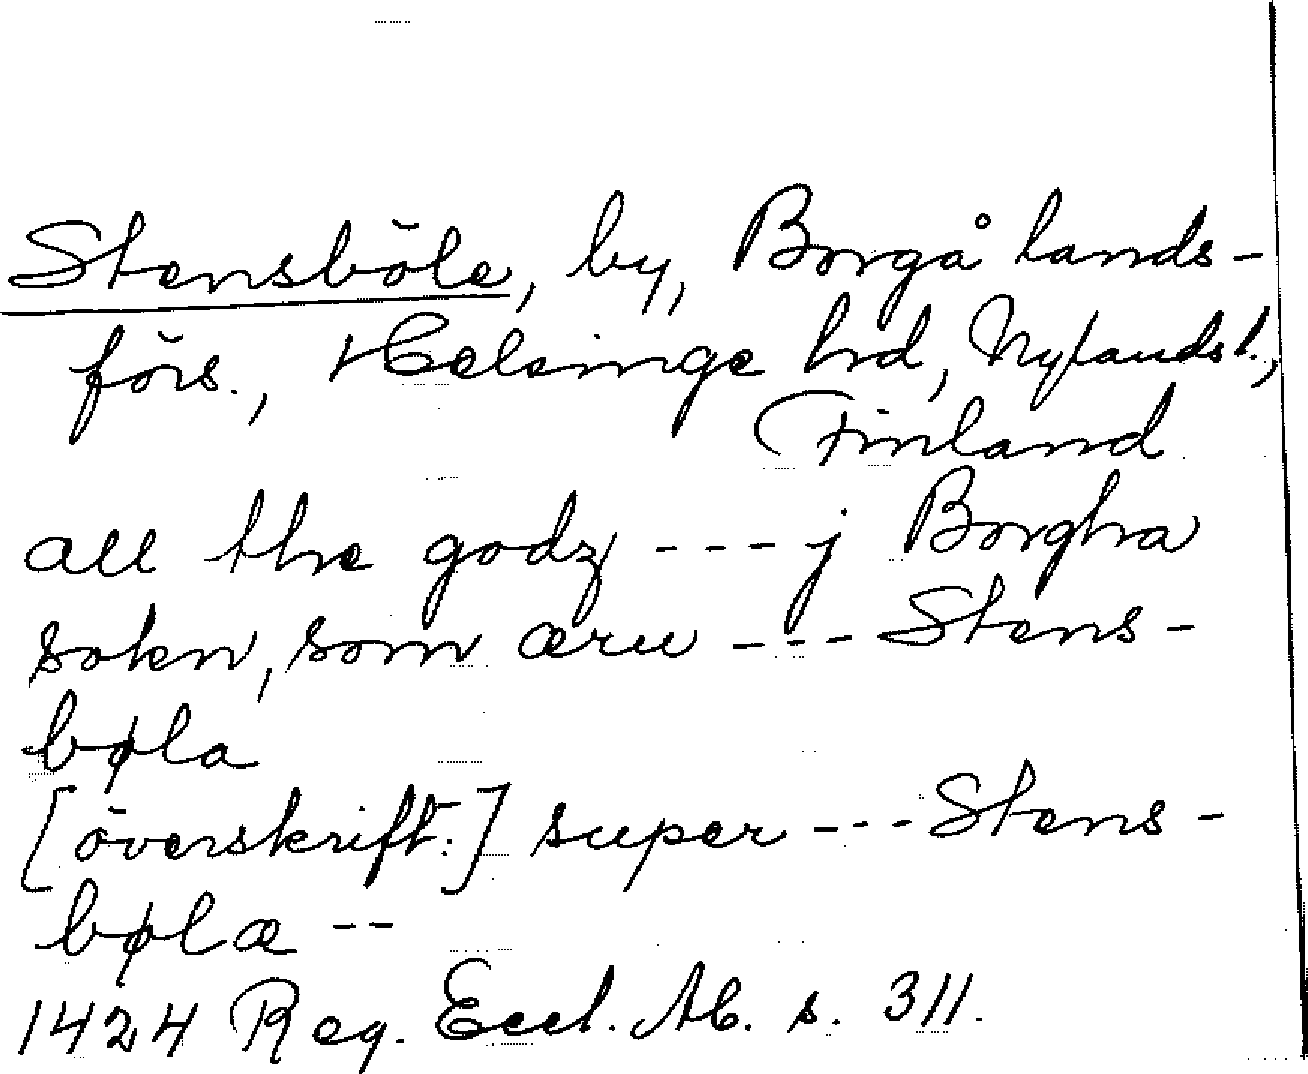 Stensböle, by, Borgå lands-
förs., Helsinge hd, Nylands l.,
Finland
all the godz --- j Borgha
sokn, som æru --- Stens-
bøla
[överskrift:] super --- Stens-
bølæ --
1424 Reg. Eccl. Ab. s. 311.